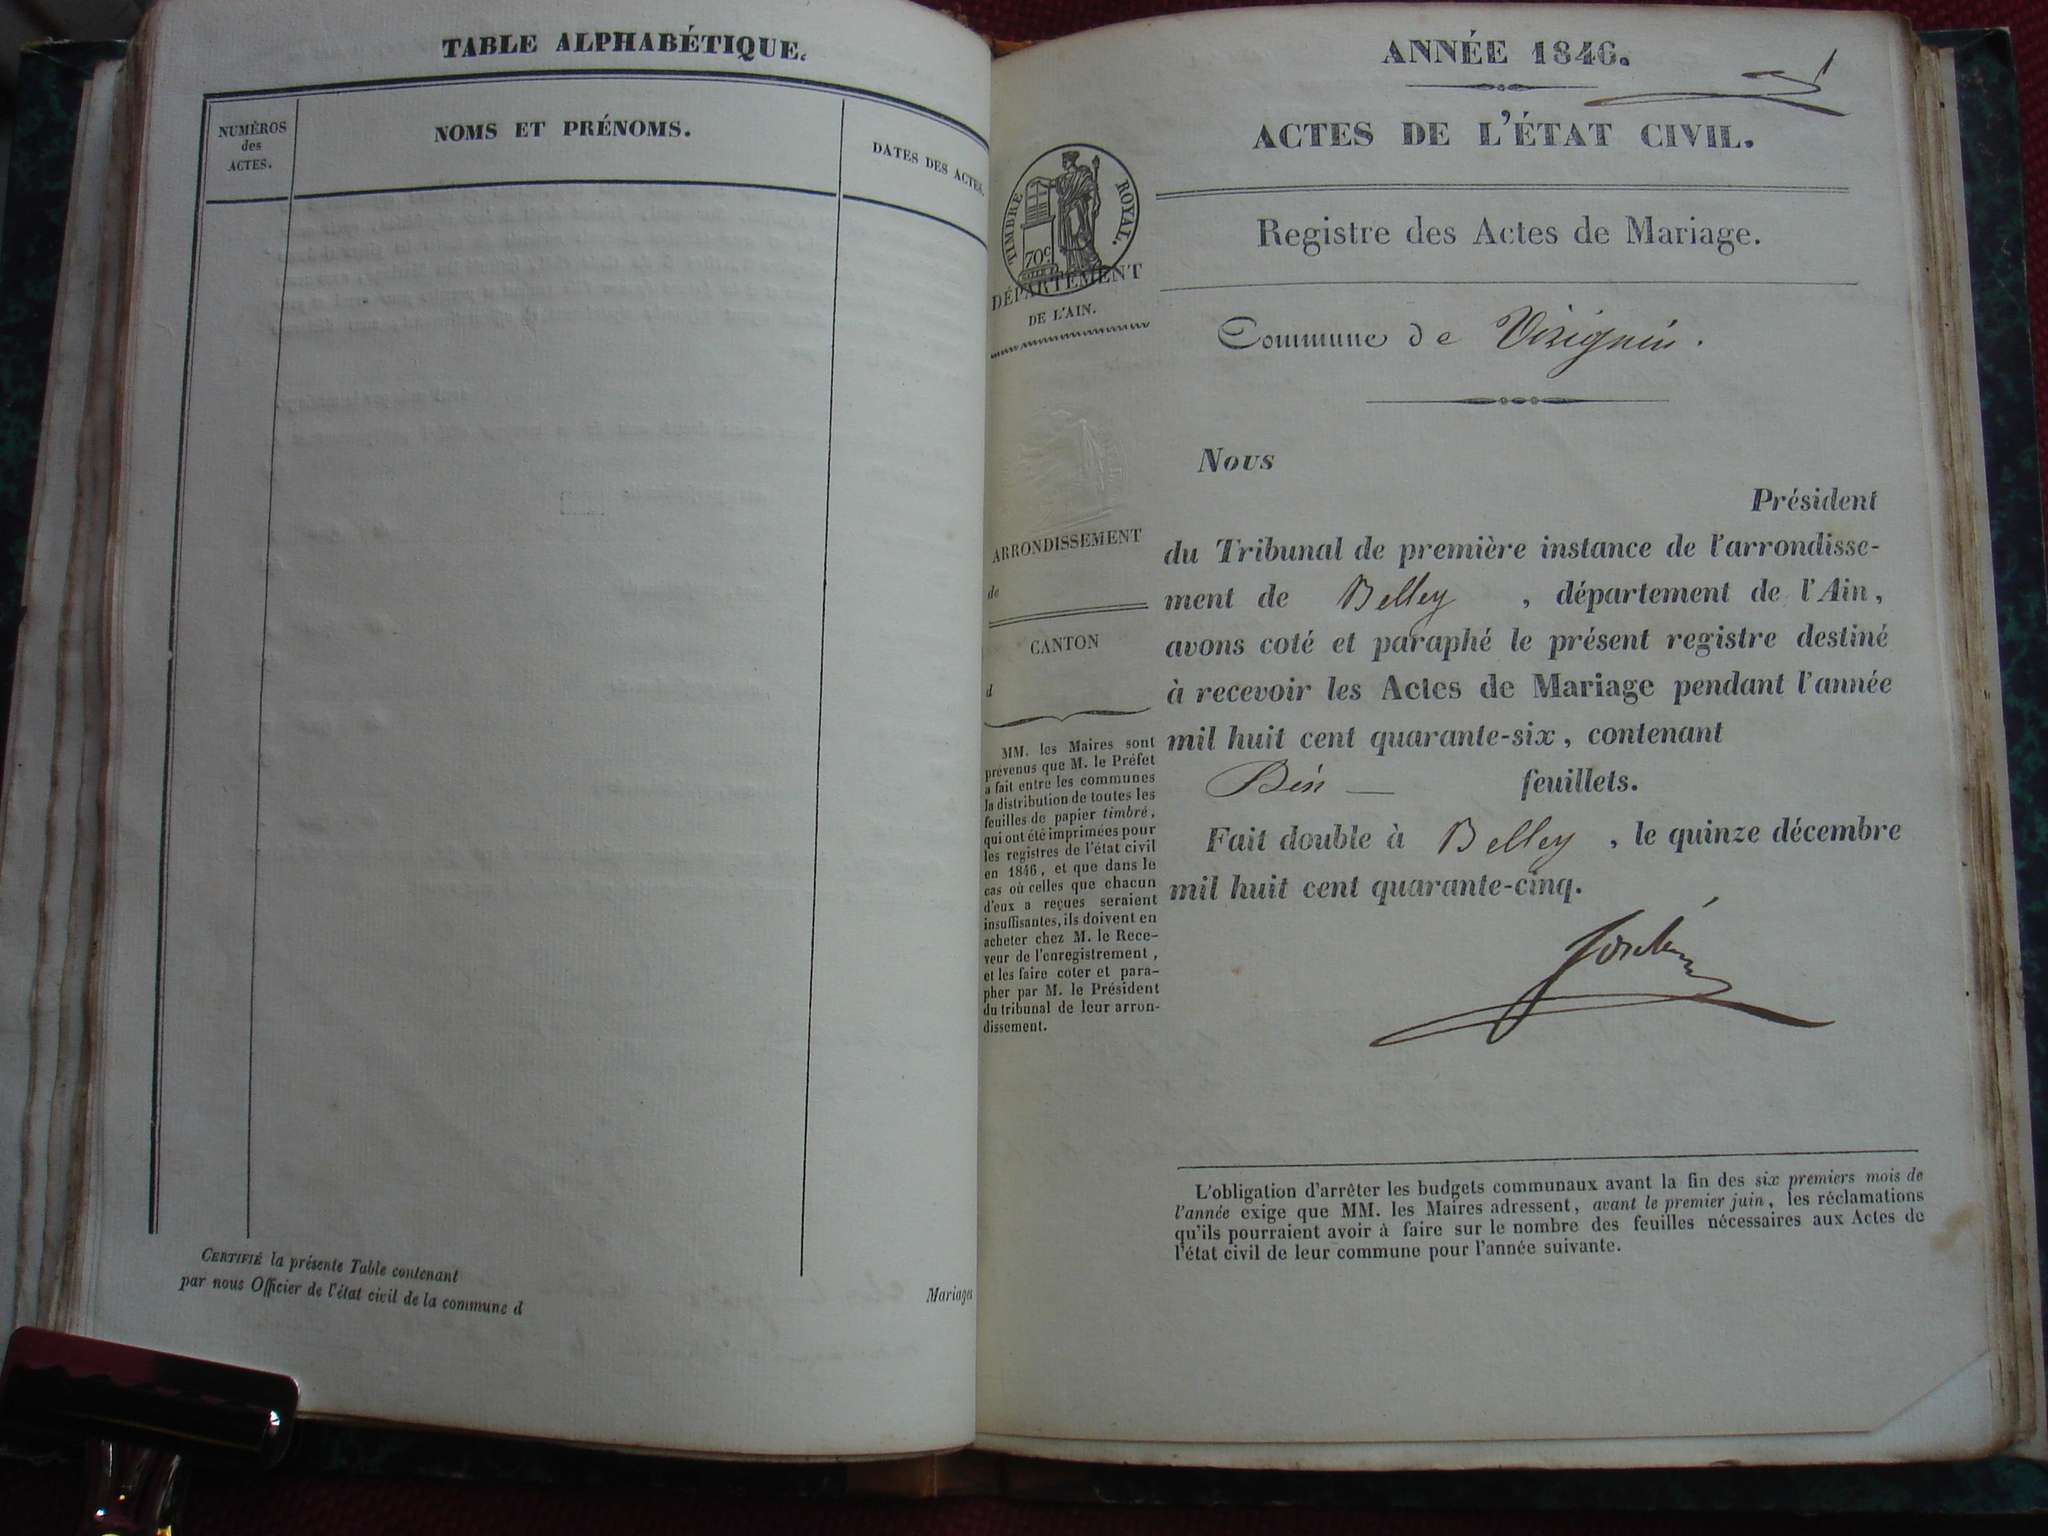 TABLE ALPHABÉTIQUE.
NUMÉROS
des
ACTES.
NOMS ET PRÉNOMS.
DATES DES ACTES.
CERTIFIÉ la présente Table contenant
Mariages
par nous Officier de l'état civil de la commune d
ANNÉE 1846.
ACTES DE L'ÉTAT CIVIL.
TIMBRE ROYAL.
70c
DÉPARTEMENT
DE L'AIN.
Registre des Actes de Mariage.
Commune de Virignin.
ARRONDISSEMENT
de
CANTON
d
MM. les Maires sont
prévenus que M. le Préfet
a fait entre les communes
la distribution de toutes les
feuilles de papier timbré,
qui ont été imprimées pour
les registres de l'état civil
en 1846, et que dans le
cas où celles que chacun
d'eux a reçues seraient
insuffisantes, ils doivent en
acheter chez M. le Rece-
veur de l'enregistrement,
et les faire coter et para-
pher par M. le Président
du tribunal de leur arron-
dissement.
Nous
Président
du Tribunal de première instance de l'arrondisse-
ment de Belley, département de l'Ain,
avons coté et paraphé le présent registre destiné
à recevoir les Actes de Mariage pendant l'année
mil huit cent quarante-six, contenant
feuillets.
Fait double à Belley, le quinze décembre
mil huit cent quarante-cinq.
L'obligation d'arrêter les budgets communaux avant la fin des six premiers mois de
l'année exige que MM. les Maires adressent, avant le premier juin, les réclamations
qu'ils pourraient avoir à faire sur le nombre des feuilles nécessaires aux Actes de
l'état civil de leur commune pour l'année suivante.